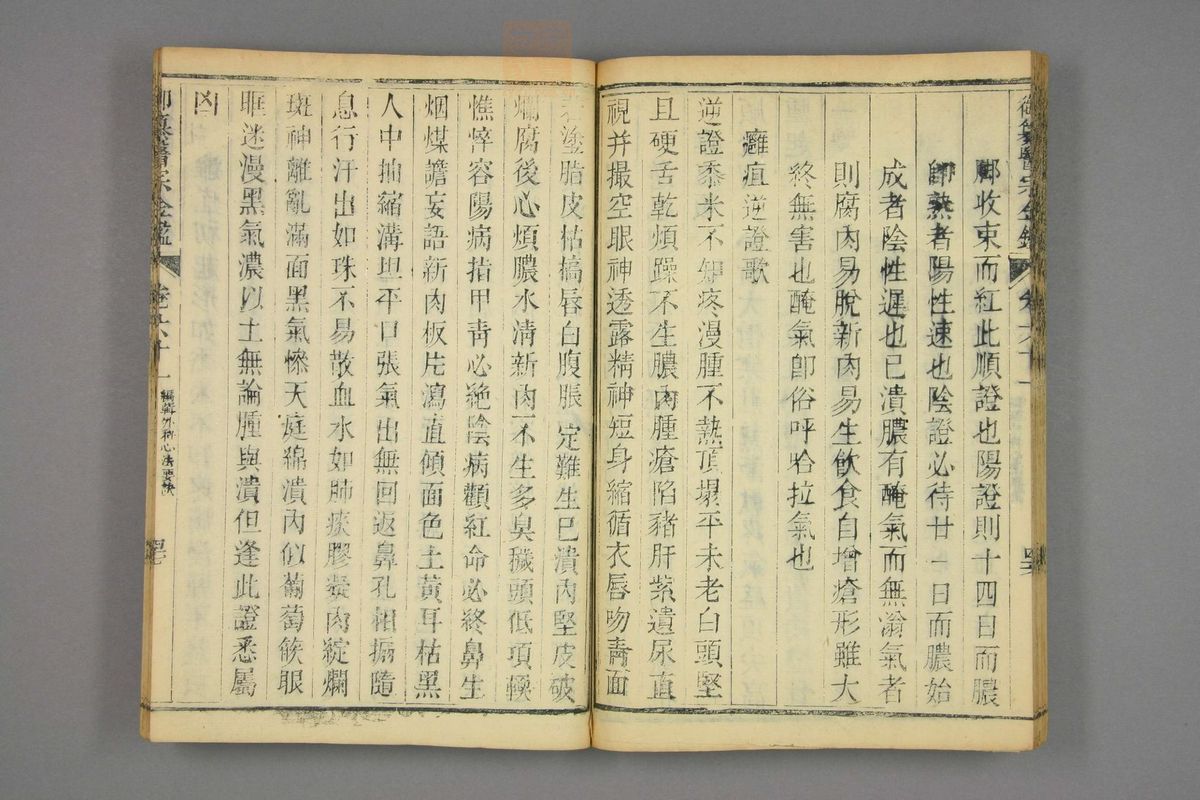 御纂醫宗金鑑 卷六十一
脚收束而紅此順證也陽證則十四日而膿
卽熟者陽性速也陰證必待廿一日而膿始
成者陰性遲也已潰膿有醃氣而無滃氣者
則腐肉易脫新肉易生飲食自增瘡形雖大
終無害也醃氣卽俗呼哈拉氣也
癰疽逆證歌
逆證黍米不知疼漫腫不熱頂塌平未老白頭堅
且硬舌乾煩躁不生膿肉腫瘡陷豬肝紫遺尿直
視并撮空眼神透露精神短身縮循衣唇吻靑面
若塗脂皮枯槁唇白腹脹定難生已潰內堅皮破
爛腐後心煩膿水淸新肉不生多臭穢頭低項軃
憔悴容陽病指甲靑必絕陰病顴紅命必終鼻生
烟煤譫妄語新肉板片瀉直傾面色土黃耳枯黑
人中抽縮溝坦平口張氣出無回返鼻孔相搧隨
息行汗出如珠不易散血水如肺痰膠凝肉綻爛
斑神離亂滿面黑氣慘天庭綿潰內似葡萄篏眼
眶迷漫黑氣濃以上無論腫與潰但逢此證悉屬
凶
御纂醫宗金鑑 卷六十一 編輯外科心法要訣